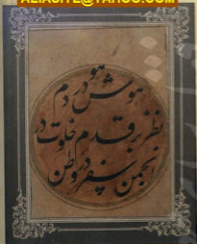 ALIASITE@YAHOO.COM
هو
هوش در دم
نظر بر قدم خلوت در
انجمن سفر در وطن